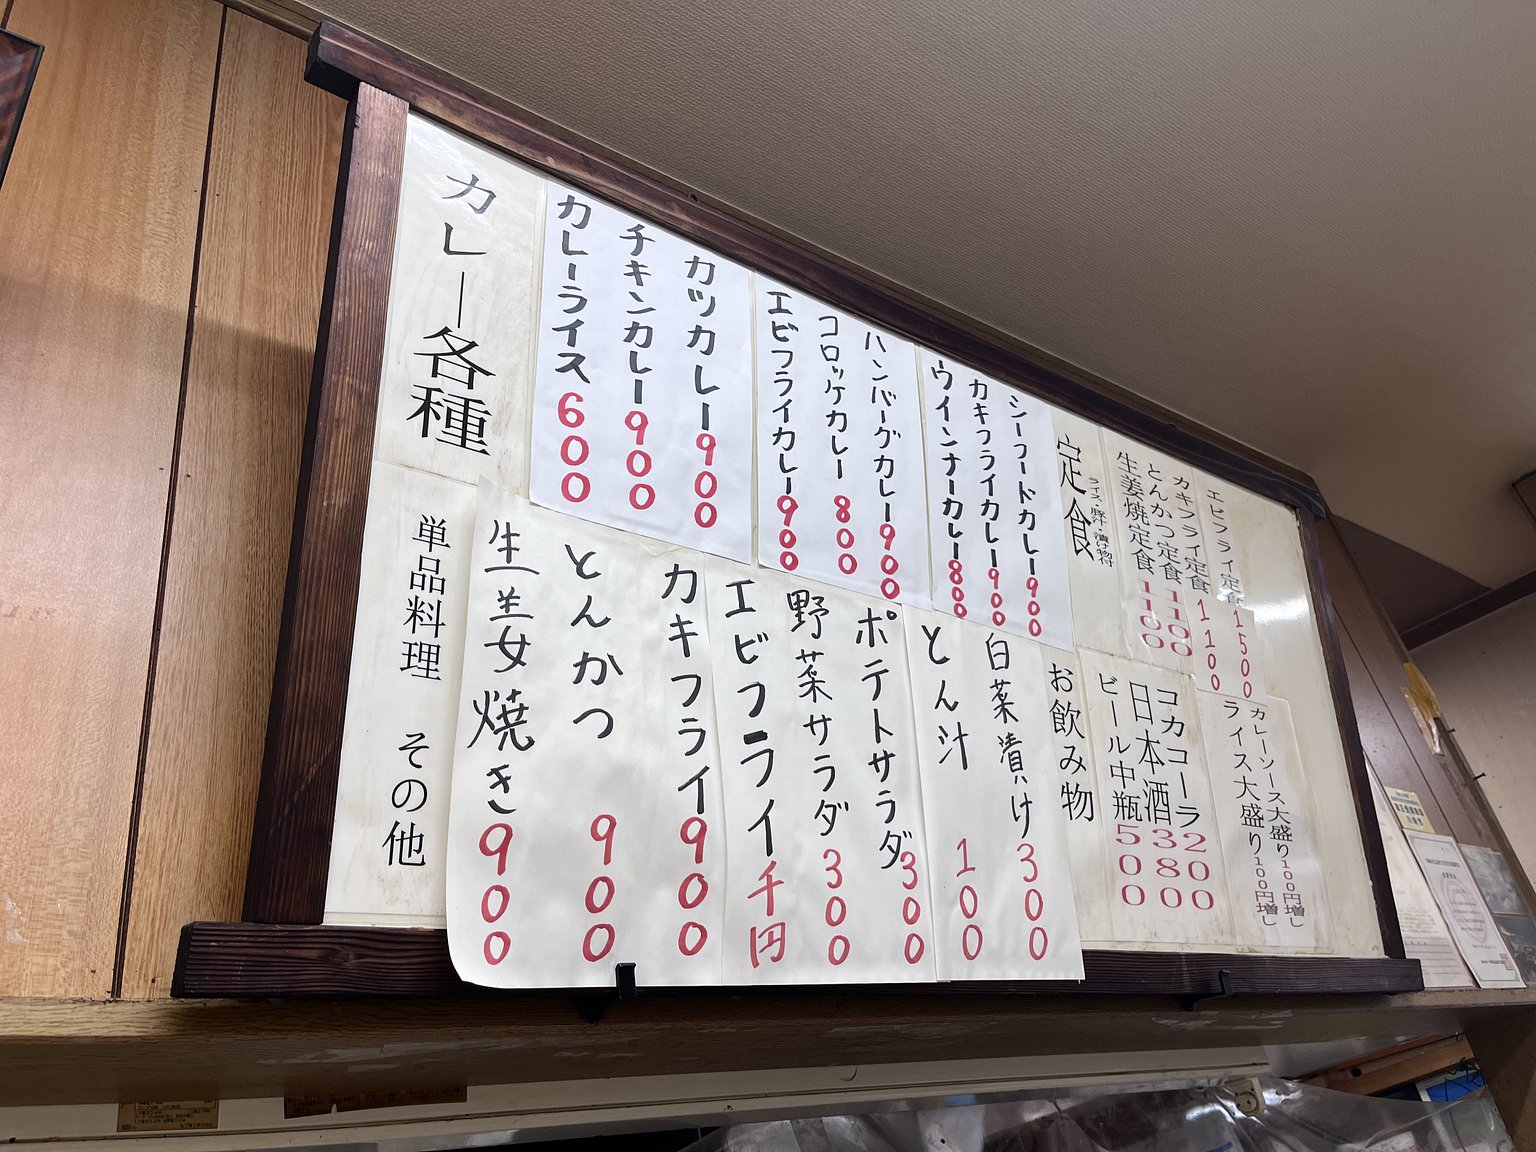 カレー各種
カレーライス 600
チキンカレー 900
カツカレー 900
エビフライカレー 900
コロッケカレー 800
ハンバーグカレー 900
ウインナーカレー 800
カキフライカレー 900
シーフードカレー 900
定食
ライス・豚汁・漬け物付
生姜焼定食 1100
とんかつ定食 1100
カキフライ定食 1100
エビフライ定食 1500
単品料理 その他
生姜焼き 900
とんかつ 900
カキフライ 900
エビフライ 千円
野菜サラダ 300
ポテトサラダ 300
とん汁 100
白菜漬け 300
お飲み物
ビール中瓶 500
日本酒 380
コカコーラ 200
ライス大盛り 100円増し
カレーソース大盛り 100円増し